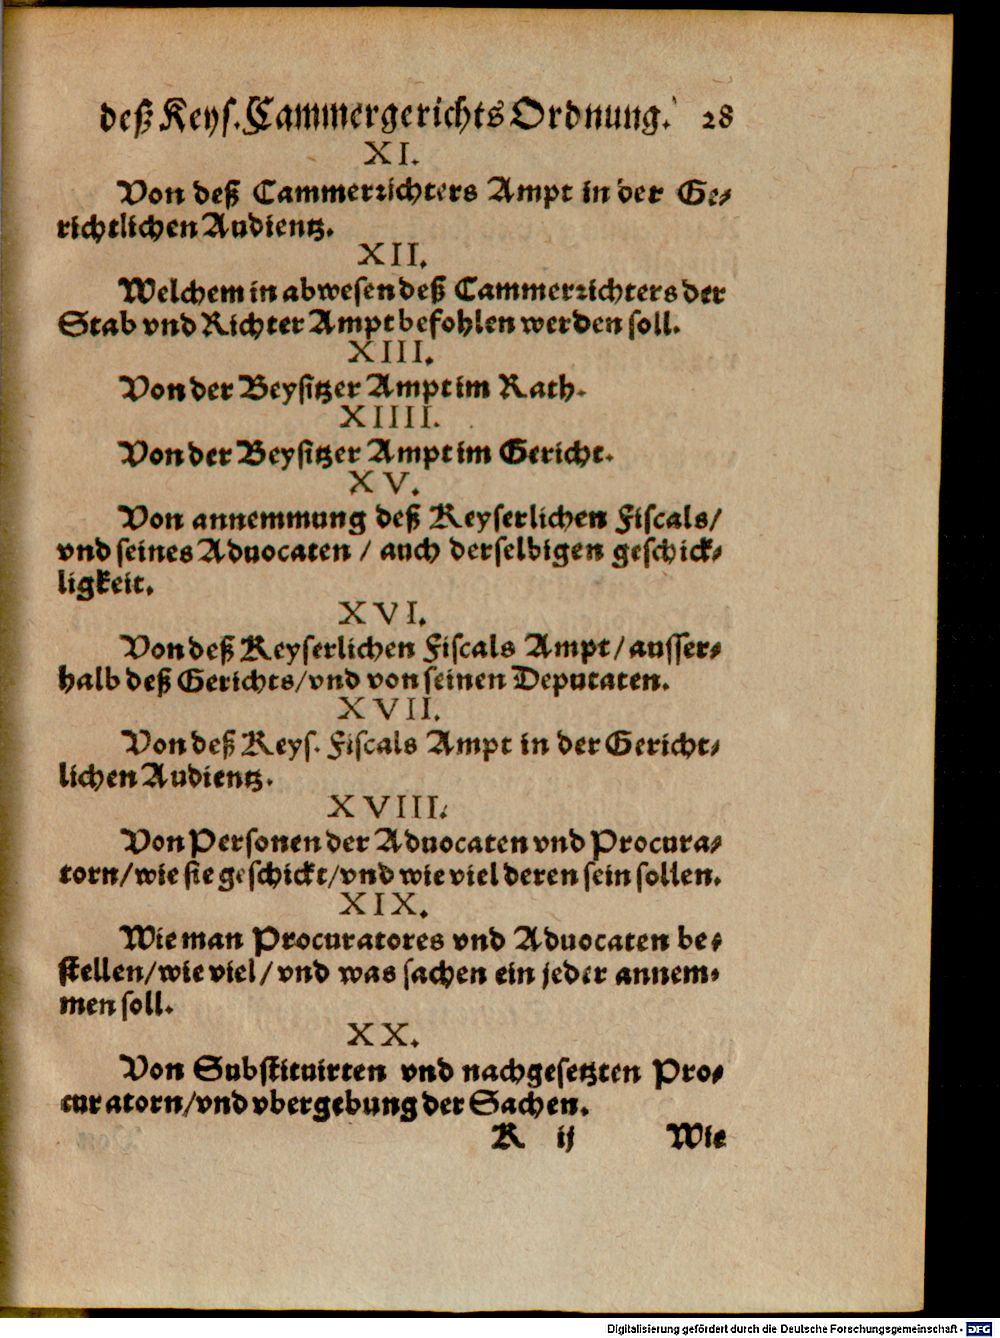 deß Keys. Cammergerichts Ordnung. 28
XI.
Von deß Cammerrichters Ampt in der Ge-
richtlichen Audientz.
XII.
Welchem in abwesen deß Cammerrichters der
Stab vnd Richter Ampt befohlen werden soll.
XIII.
Von der Beysitzer Ampt im Rath.
XIIII.
Von der Beysitzer Ampt im Gericht.
XV.
Von annemmung deß Keyserlichen Fiscals/
vnd seines Aduocaten / auch derselbigen geschick-
ligkeit.
XVI.
Von deß Keyserlichen Fiscals Ampt/ ausser-
halb deß Gerichts/vnd von seinen Deputaten.
XVII.
Von deß Keys. Fiscals Ampt in der Gericht-
lichen Audientz.
XVIII.
Von Personen der Aduocaten vnd Procura-
torn/wie sie geschickt/vnd wie viel deren sein sollen.
XIX.
Wie man Procuratores vnd Aduocaten be-
stellen/wie viel/ vnd was sachen ein jeder annem-
men soll.
XX.
Von Substituirten vnd nachgesetzten Pro-
curatorn/vnd vbergebung der Sachen.
K ij Wie
Digitalisierung gefördert durch die Deutsche Forschungsgemeinschaft - DFG